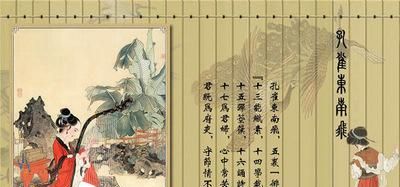 孔雀東南飛
孔雀東南飛，五裏一徘
『十三能織素，十四學裁
十五彈箜篌，十六誦詩
十七爲君婦，心中常苦
君既爲府吏，守節情不